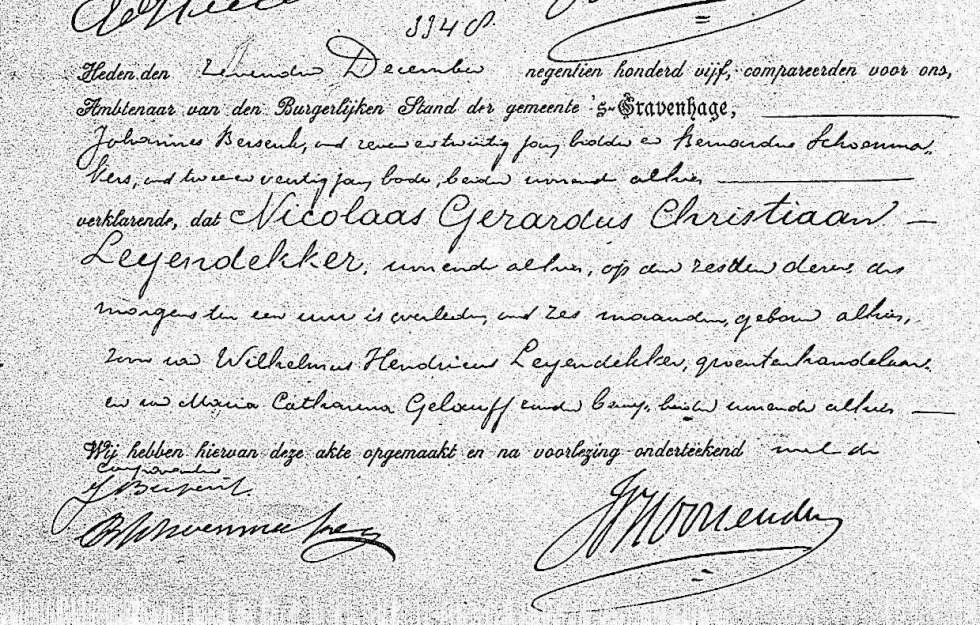 3348.
Heden den zevenden December negentien honderd vijf, compareerden voor ons,
Ambtenaar van den Burgerlijken Stand der gemeente 's-Gravenhage,
Johannes oud zevenentwintig jaar, bidder en Bernardus Schoenma-
kers, oud tweeenveertig jaar, bode, beiden wonende alhier
verklarende, dat Nicolaas Gerardus Christiaan
Leyendekker, wonende alhier, op den zesden dezer des
morgens ten een uur is overleden, oud zes maanden, geboren alhier,
zoon van Wilhelmus Hendricus Leyendekker, groentenhandelaar
en van Maria Catharina Gelauff zonder beroep, beiden wonende alhier
Wij hebben hiervan deze akte opgemaakt en na voorlezing onderteekend met de
comparanten
B Schoenmakers